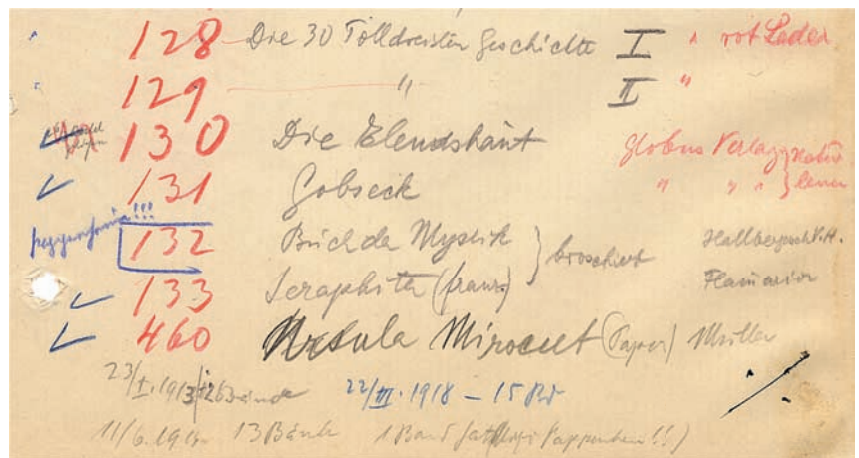 128 — Die 30 Tolldreisten Geschichte I " rot Leder
129 — " II "
130 Die Elendshaut Globus Verlag } natur
131 Gobseck " " " } leinen
132 Buch der Mystik } broschiert Hallbergsche V.H.
133 Seraphita (franz.) Flamarion
460 Ursula Mirouet (Papier) Müller
23/I. 1913 26 Bände 22/III. 1918 — 15 Bd
11/6. 19 13 Bände 1 Band hat Pappenheim!!)